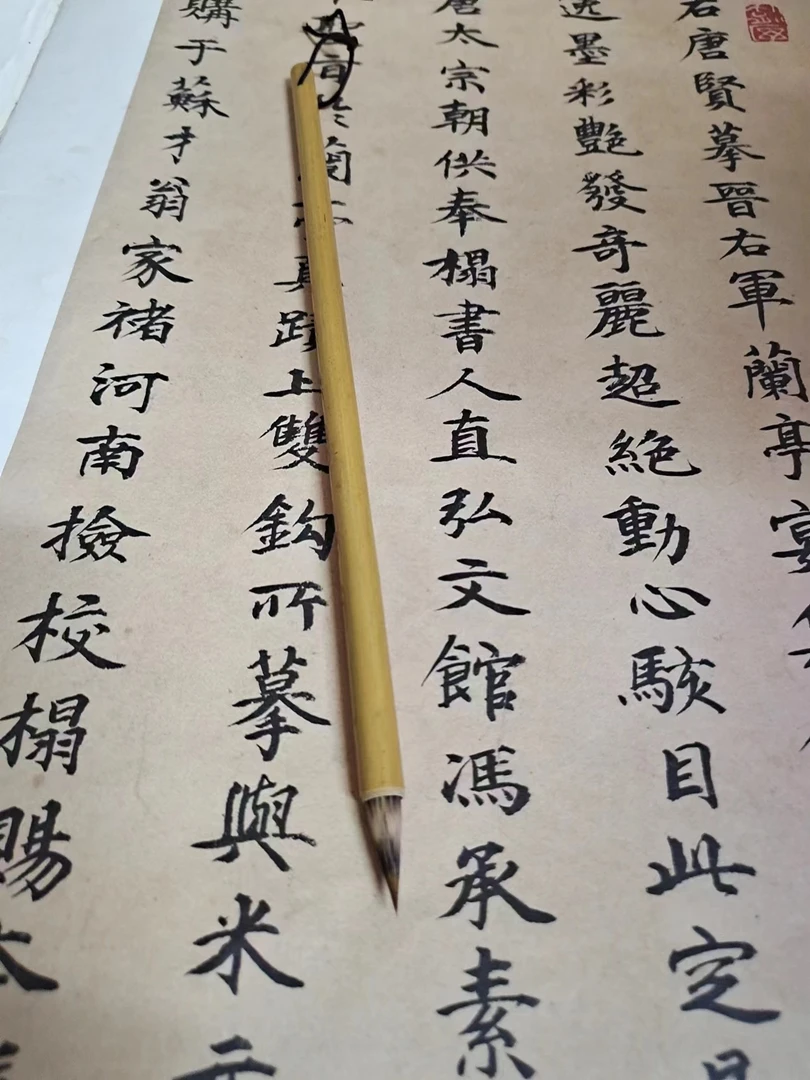 右唐賢摹晉右軍蘭亭宴
逸墨彩艷發奇麗超絶動心駭目此定
唐太宗朝供奉榻書人直弘文館馮承素
於蘭
真蹟上雙鈎所摹與米元
購于蘇才翁家褚河南撿校榻賜太